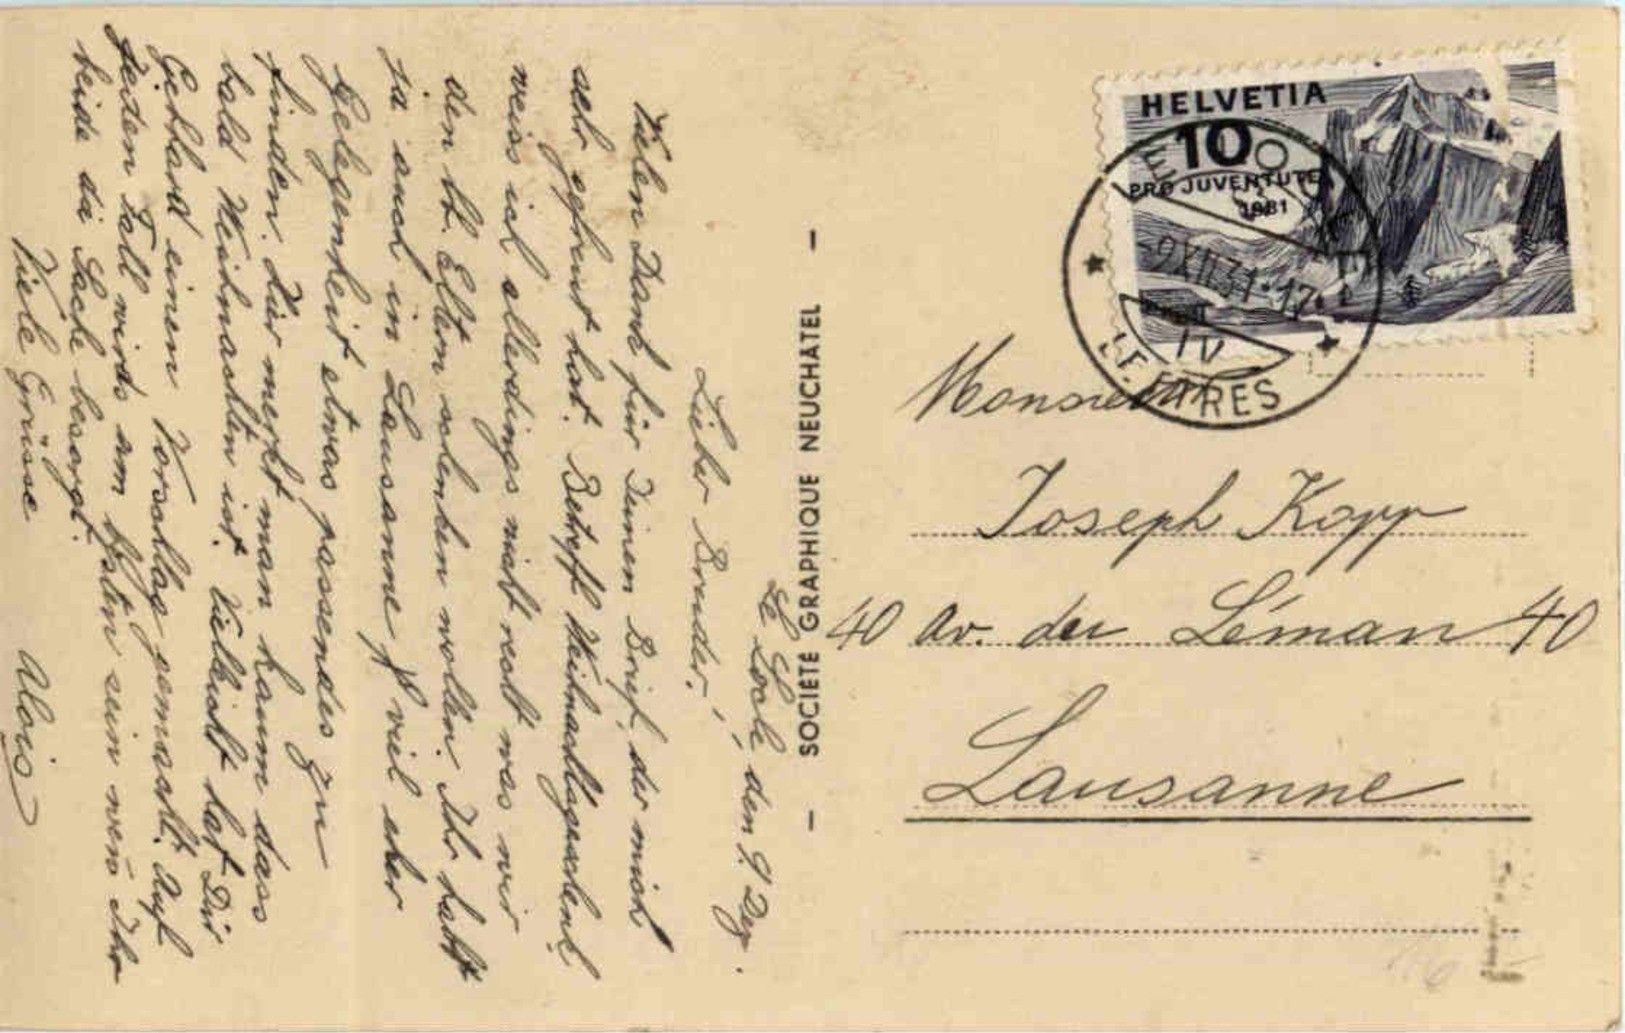 Le Locle den 9. Dez.
Lieber Bruder!
Vielen Dank für Deinen Brief, der mich
sehr gefreut hat. Betreff Weihnachtsgeschenk
weiss ich allerdings nicht recht was wir
den lb. Eltern schenken wollen. Ihr habt
ja auch in Lausanne viel eher
Gelegenheit etwas passendes zu
finden. Hier merkt man kaum dass
bald Weihnachten ist. Vielleicht hat Dir
Gebhard einen Vorschlag gemacht. Auf
jeden Fall wirds am besten sein wen Ihr
beide die Sache besorgt.
Viele Grüsse
Alois
— SOCIÉTÉ GRAPHIQUE NEUCHATEL —
HELVETIA
10
PRO JUVENTUTE
1931
-9.XII.31.-17
IV
LETTRES
Monsieur
Joseph Kopp
40 Av. du Léman 40
Lausanne